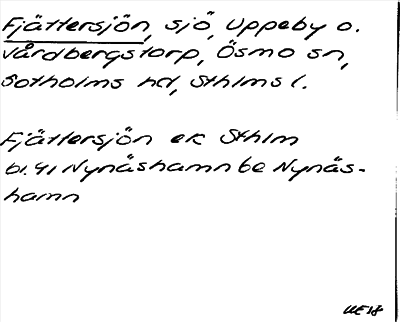 Fjättersjön, sjö, Uppeby o.
Vårdbergstorp, Ösmo sn,
Sotholms hd, Sthlms l.
Fjättersjön ek Sthlm
bl. 41 Nynäshamn be Nynäs-
hamn